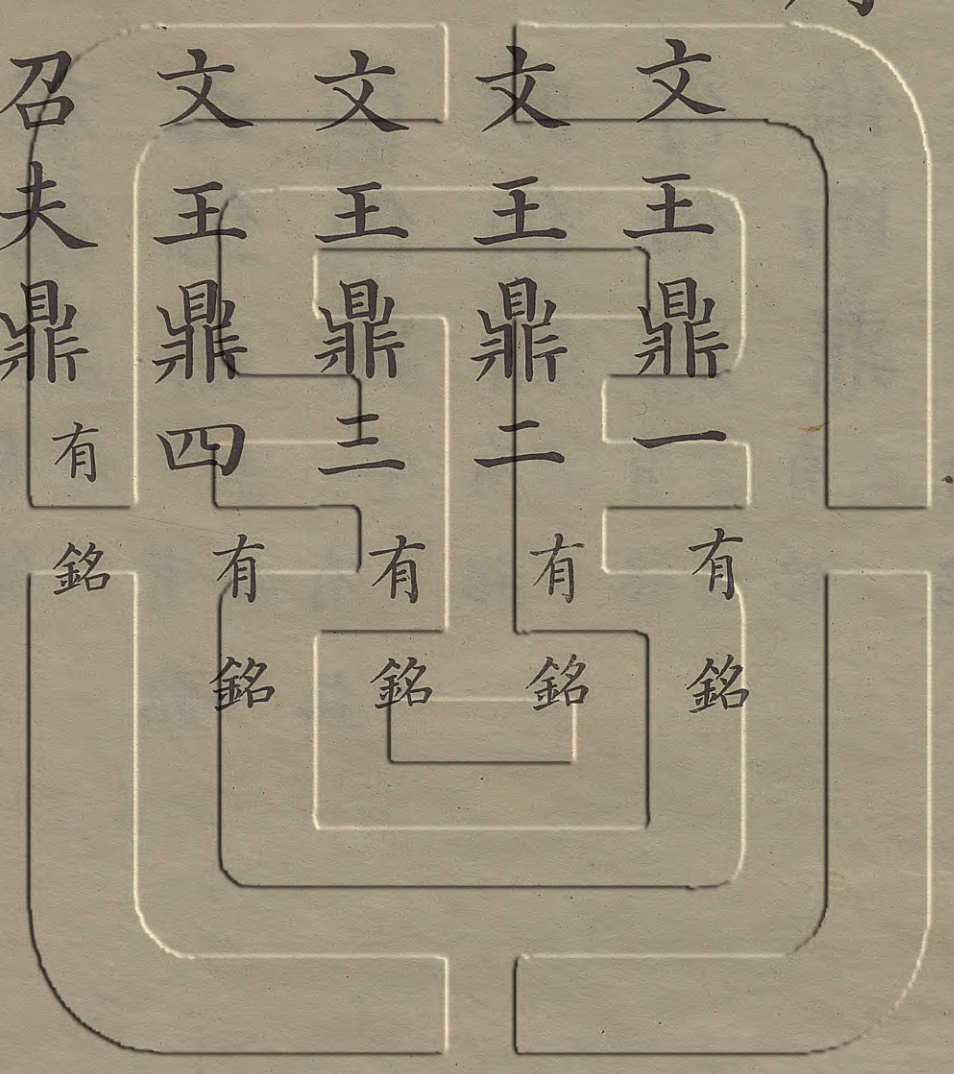 文王鼎一有銘
文王鼎二有銘
文王鼎三有銘
文王鼎四有銘
召夫鼎有銘